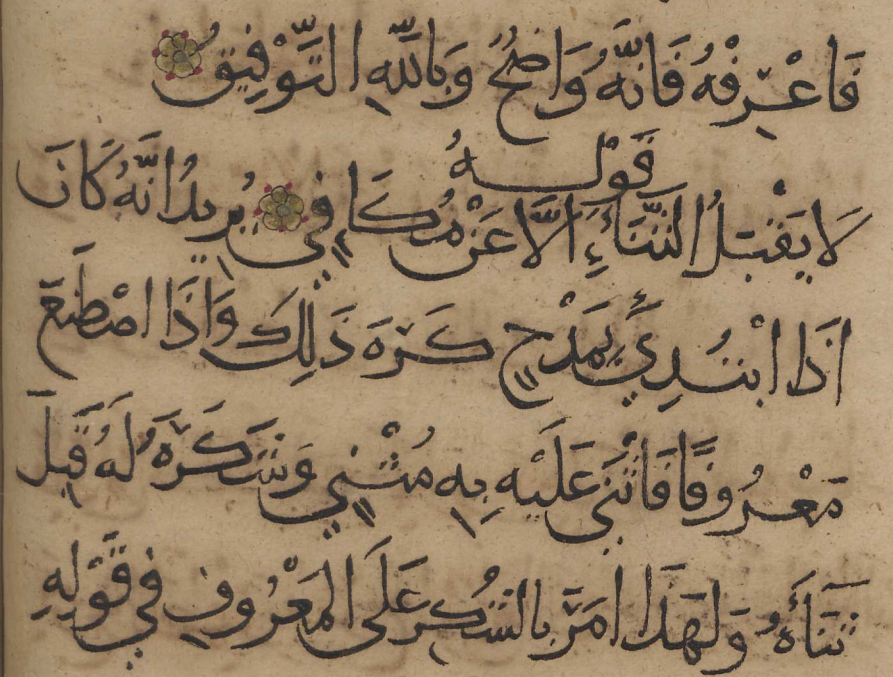 فَاعْرِفْهُ فَانَّهُ وَاضِحٌ وَبِاللَّهِ التَّوْفِيقُ
قَوْلُهُ
لَا يَقْبَلُ الثَّنَاءَ اِلَّا عَنْ مُكَافِي يُرِيدُ انَّهُ كَانَ
اذَا ابْتُدِيَ بِمَدْحٍ كَرِهَ ذَلِكَ وَاذَا اصْطَنَعَ
مَعْرُوفًا فَاثْنَى عَلَيْهِ بِهِ مُثْنِي وَشَكَرَهُ لَهُ قَبِلَ
ثَنَاءَهُ وَلِهَذَا امَرَ بِالشُكْرِ عَلَى الْمَعْرُوفِ فِي قَوْلِهِ